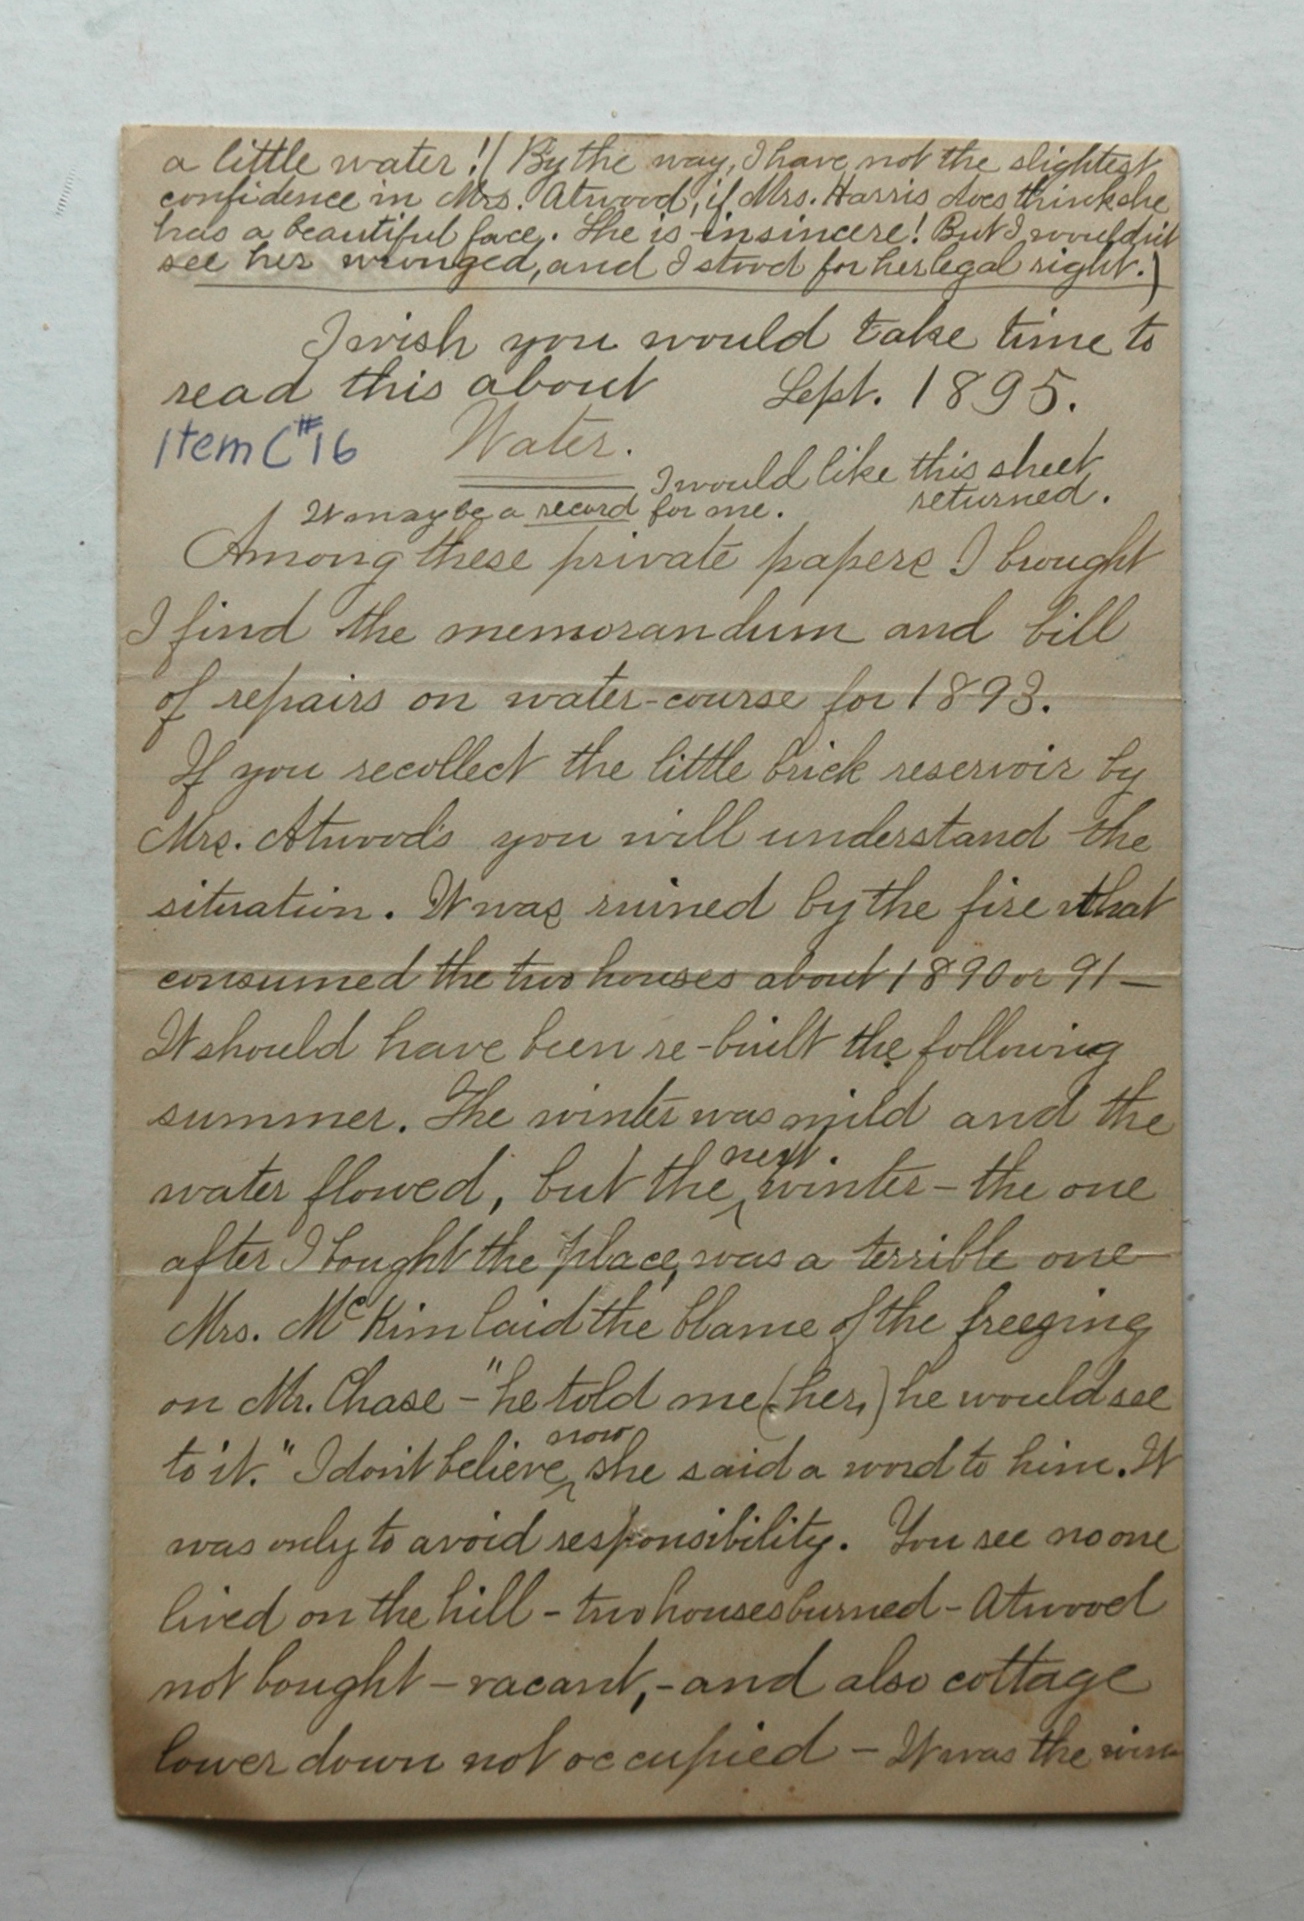 a little water! (By the way, I have not the slightest
confidence in Mrs. Atwood, if Mrs. Harris does think she
has a beautiful face. She is insincere! But I wouldn't
see her wronged, and I stood for her legal right.)
I wish you would take time to
read this about Sept. 1895.
Item C #16 Water.
I would like this sheet
returned.
It may be a record for me.
Among these private papers I brought
I find the memorandum and bill
of repairs on water-course for 1893.
If you recollect the little brick reservoir by
Mrs. Atwood's you will understand the
situation. It was ruined by the fire that
consumed the two houses about 1890 or 91 —
It should have been re-built the following
summer. The winter was mild and the
water flowed, but the next winter - the one
after I bought the place, was a terrible one
Mrs. McKim laid the blame of the freezing
on Mr. Chase - "he told me (her,) he would see
to it." I don't believe now she said a word to him. It
was only to avoid responsibility. You see no one
lived on the hill - two houses burned - Atwood
not bought - vacant, - and also cottage
lower down not occupied - It was the